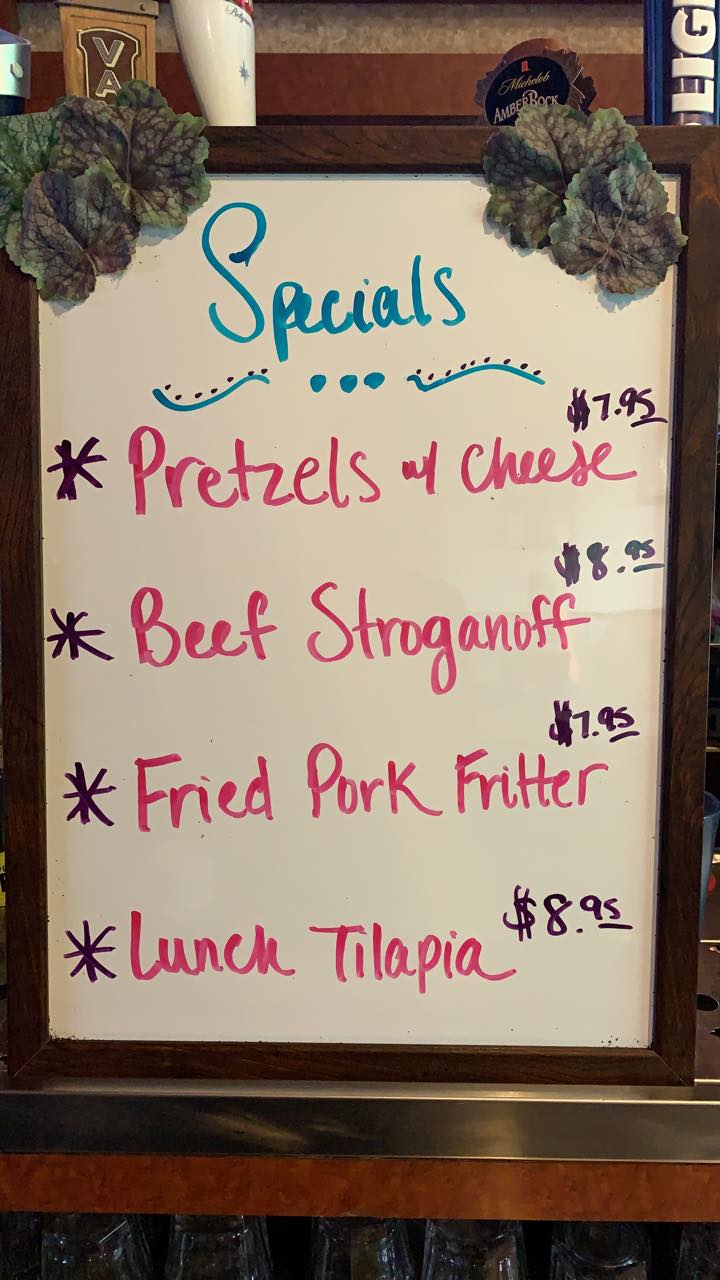 VA
Michelob
AMBERBOCK
LIG
Specials
$7.95
* Pretzels w/ Cheese
$8.95
* Beef Stroganoff
$7.95
* Fried Pork Fritter
$8.95
* Lunch Tilapia